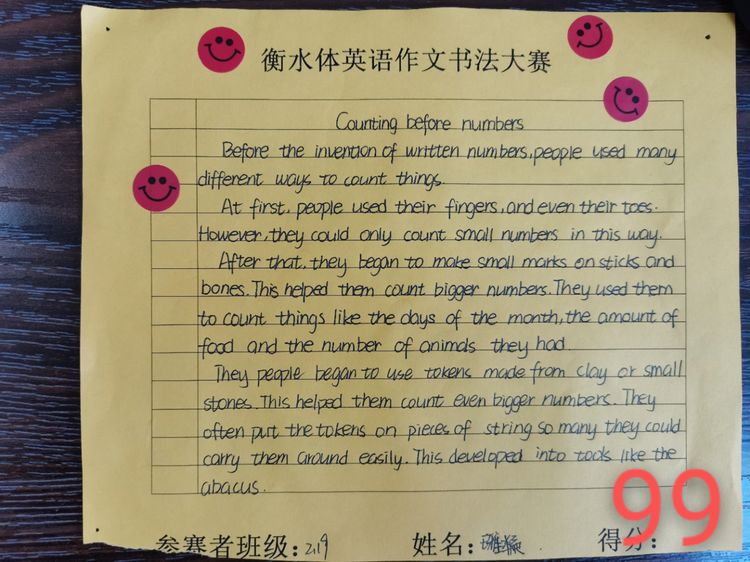 衡水体英语作文书法大赛
Counting before numbers
Before the invention of written numbers, people used many
different ways to count things.
At first, people used their fingers, and even their toes.
However, they could only count small numbers in this way.
After that, they began to make small marks on sticks and
bones. This helped them count bigger numbers. They used them
to count things like the days of the month, the amount of
food and the number of animals they had.
They people began to use tokens made from clay or small
stones. This helped them count even bigger numbers. They
often put the tokens on pieces of string so many they could
carry them around easily. This developed into tools like the
abacus.
参赛者班级: 2.19 姓名: 得分:
99